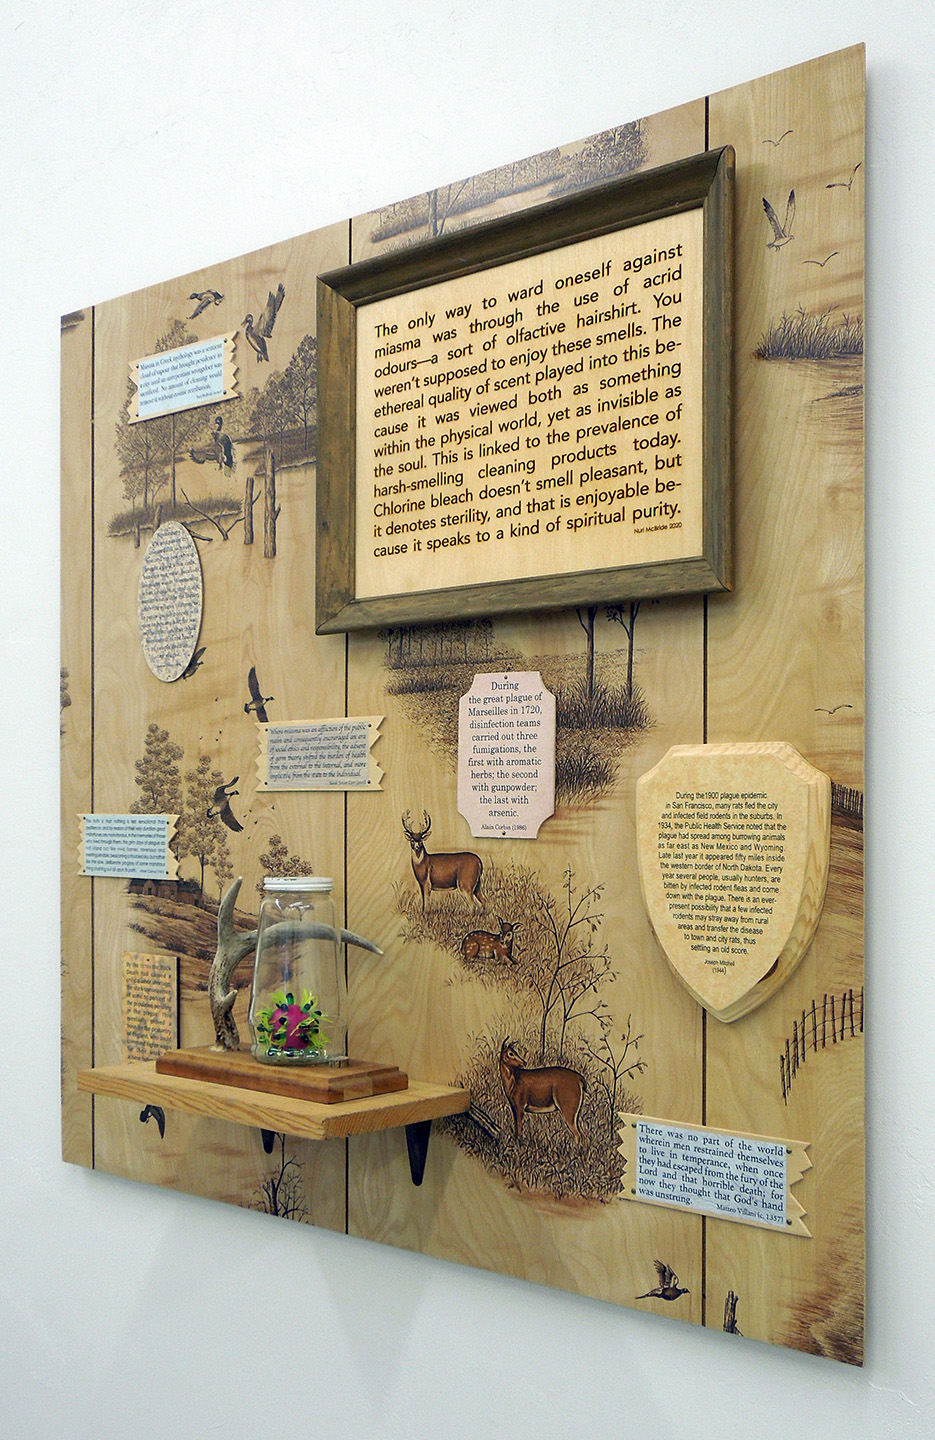 The only way to ward oneself against
miasma was through the use of acrid
odours—a sort of olfactive hairshirt. You
weren't supposed to enjoy these smells. The
ethereal quality of scent played into this be-
cause it was viewed both as something
within the physical world, yet as invisible as
the soul. This is linked to the prevalence of
harsh-smelling cleaning products today.
Chlorine bleach doesn't smell pleasant, but
it denotes sterility, and that is enjoyable be-
cause it speaks to a kind of spiritual purity.
Nuri McBride 2020
Miasma in Greek mythology was a sentient
cloud of vapour that brought pestilence to
a city until an unrepentant wrongdoer was
sacrificed. No amount of cleaning would
remove it without cosmic retribution.
Where miasma was an affliction of the public
realm and consequently encouraged an era
of social ethics and responsibility, the advent
of germ theory shifted the burden of health
from the external to the internal, and more
implicitly from the state to the individual.
During
the great plague of
Marseilles in 1720,
disinfection teams
carried out three
fumigations, the
first with aromatic
herbs; the second
with gunpowder;
the last with
arsenic.
Alain Corbin (1986)
During the 1900 plague epidemic
in San Francisco, many rats fled the city
and infected field rodents in the suburbs. In
1934, the Public Health Service noted that the
plague had spread among burrowing animals
as far east as New Mexico and Wyoming.
Late last year it appeared fifty miles inside
the western border of North Dakota. Every
year several people, usually hunters, are
bitten by infected rodent fleas and come
down with the plague. There is an ever-
present possibility that a few infected
rodents may stray away from rural
areas and transfer the disease
to town and city rats, thus
settling an old score.
Joseph Mitchell
(1944)
There was no part of the world
wherein men restrained themselves
to live in temperance, when once
they had escaped from the fury of the
Lord and that horrible death; for
now they thought that God's hand
was unstrung.
Matteo Villani (c. 1357)